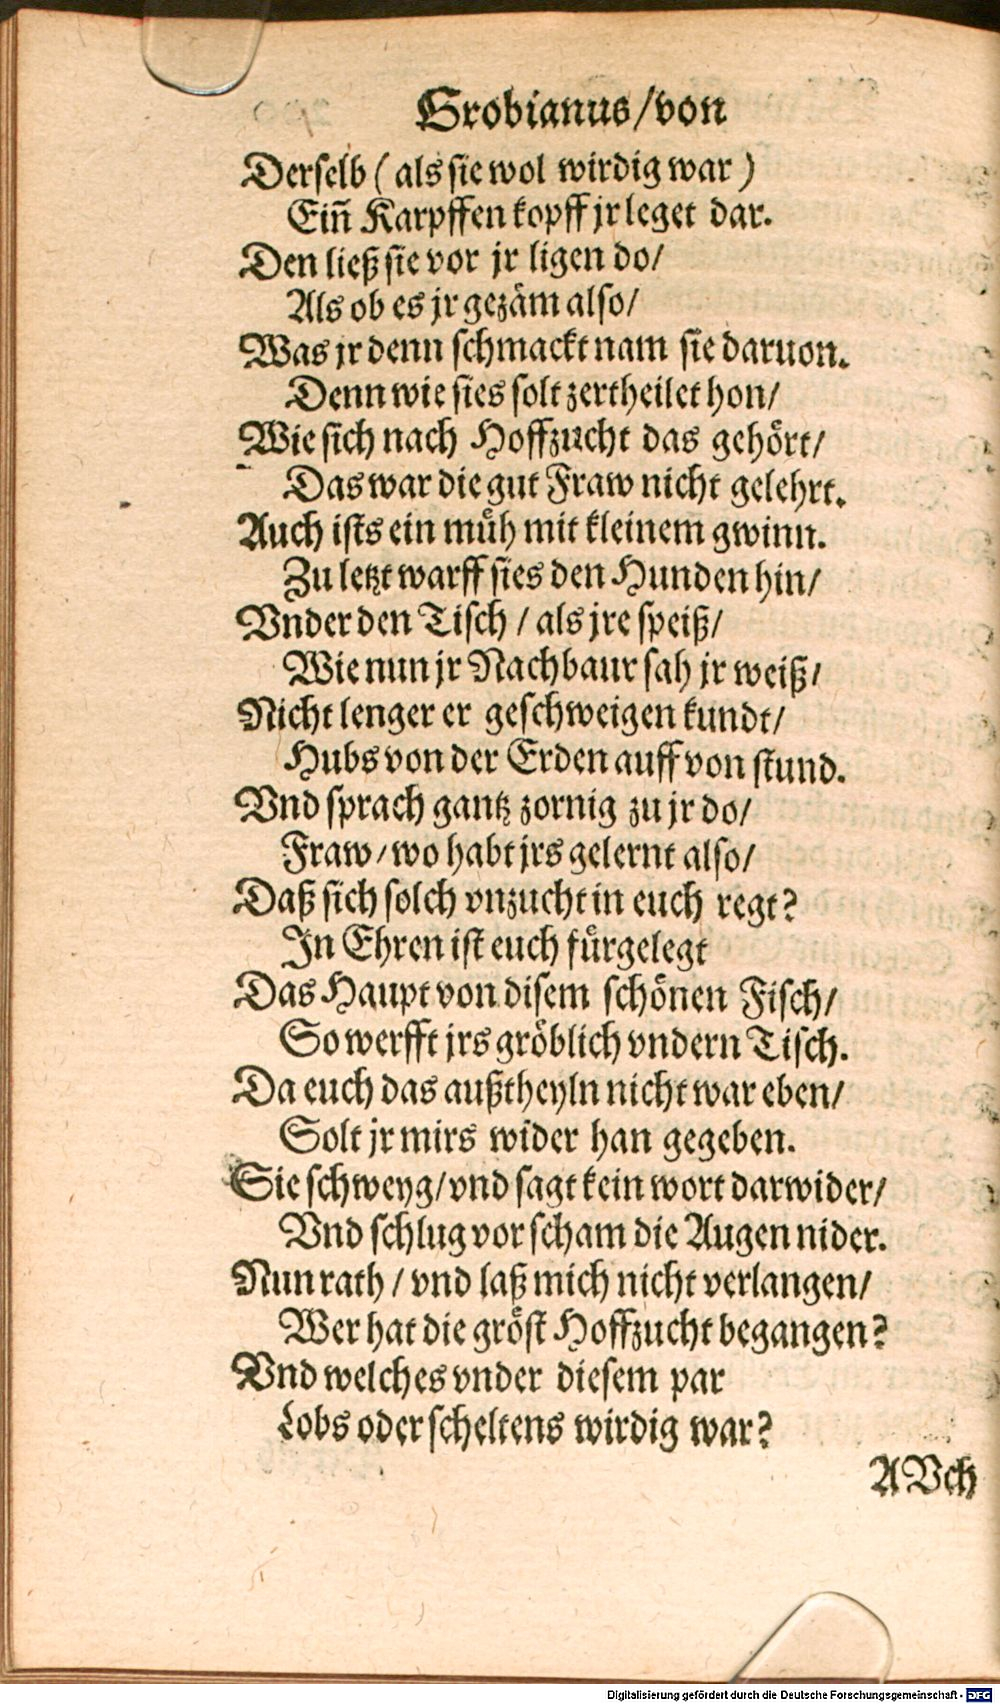 Grobianus/von
Derselb (als sie wol wirdig war)
Eiñ Karpffen kopff jr leget dar.
Den ließ sie vor jr ligen do/
Als ob es jr gezäm also/
Was jr denn schmackt nam sie daruon.
Denn wie sies solt zertheilet hon/
Wie sich nach Hoffzucht das gehört/
Das war die gut Fraw nicht gelehrt.
Auch ists ein müh mit kleinem gwinn.
Zu letzt warff sies den Hunden hin/
Vnder den Tisch / als jre speiß/
Wie nun jr Nachbaur sah jr weiß/
Nicht lenger er geschweigen kundt/
Hubs von der Erden auff von stund.
Vnd sprach gantz zornig zu jr do/
Fraw/wo habt jrs gelernt also/
Daß sich solch vnzucht in euch regt?
In Ehren ist euch fürgelegt
Das Haupt von disem schönen Fisch/
So werfft jrs gröblich vndern Tisch.
Da euch das außtheyln nicht war eben/
Solt jr mirs wider han gegeben.
Sie schweyg/vnd sagt kein wort darwider/
Vnd schlug vor scham die Augen nider.
Nun rath / vnd laß mich nicht verlangen/
Wer hat die gröst Hoffzucht begangen?
Vnd welches vnder diesem par
Lobs oder scheltens wirdig war?
AVch
Digitalisierung gefördert durch die Deutsche Forschungsgemeinschaft - DFG